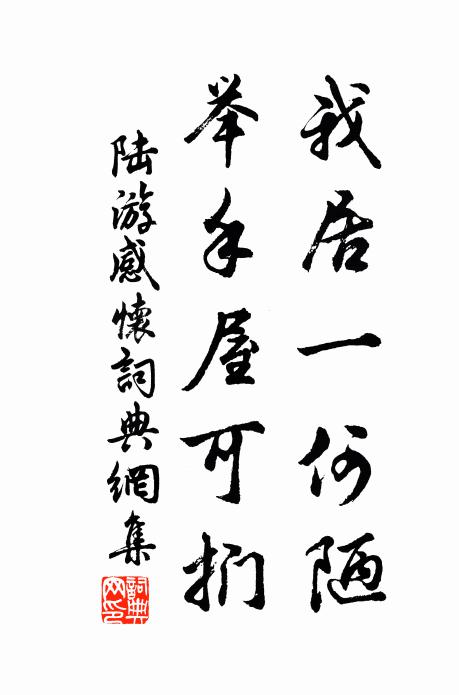 我居一何陋
举手屋可扪
陆游感懷詞典網集
詞典网印